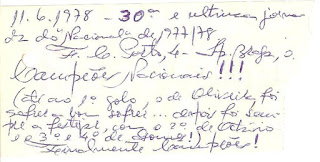 11.6.1978 - 30ª e última jorna
da do Nacional de 1977/78
F. C. Porto, 4 - Sp. Braga, 0
Campeões Nacionais!!!
(Até ao 1º golo, o de Oliveira, foi
sofrer bom sofrer... depois foi sem
pre a festejar, com o 2º de Octávio
e o 3º e 4º de Gomes!)
Finalmente Campeões!